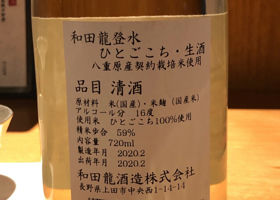 和田龍登水
ひとごこち・生酒
八重原産契約栽培米使用
品目 清酒
原材料 米(国産)・米麹(国産米)
アルコール分 16度
使用米 ひとごこち100%使用
精米歩合 59%
内容量 720ml
製造年月 2020.2
出荷年月 2020.2
和田龍酒造株式会社
長野県上田市中央西1-14-14